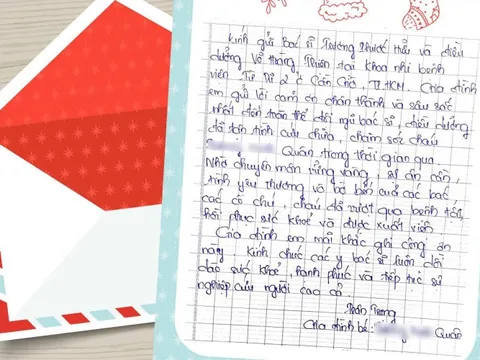 Kính gửi Bác sĩ Trương Phước Hải và điều
dưỡng Võ Hoàng Thiên tại khoa nhi bệnh
viện Từ Dũ 2 ở Cần Giờ, TP.HCM. Gia đình
em gửi lời cảm ơn chân thành và sâu sắc
nhất đến toàn thể đội ngũ bác sĩ, điều dưỡng
đã tận tình cứu chữa, chăm sóc cháu
Quân trong thời gian qua.
Nhờ chuyên môn vững vàng, sự ân cần,
tình yêu thương và bền bỉ của các bác
các cô chú, cháu đã vượt qua bệnh tật,
hồi phục sức khoẻ và được xuất viện
Gia đình em mãi khắc ghi công ơn
này. Kính chúc các y bác sĩ luôn dồi
dào sức khoẻ, hạnh phúc và tiếp tục sự
nghiệp cứu người cao cả.
Trân Trọng
Gia đình bé: Quân